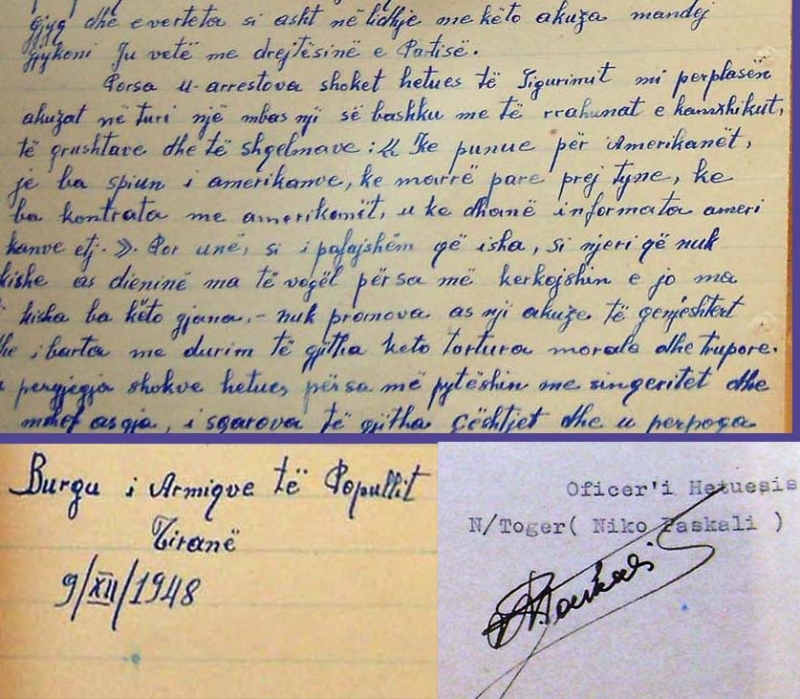 gjyq dhe everteta si asht në lidhje me këto akuza mandej
gjykoni Ju vetë me drejtësinë e Partisë.
Porsa u-arrestova shokët hetues të Sigurimit mi perplasën
akuzat në turi një mbas nji së bashku me të rrahunat e kamxhikut,
të grushtave dhe të shqelmave: « Ke punue për Amerikanët,
je ba spiun i amerikanve, ke marrë pare prej tyne, ke
ba kontrata me amerikanët, u ke dhanë informata ameri
kanve etj. ». Por unë, si i pafajshëm që isha, si njeri që nuk
kishe as dieninë ma të vogël përsa më kerkojshin e jo ma
kisha ba këto gjana,- nuk pranova as nji akuzë të genjeshtert
dhe i barta me durim të gjitha keto tortura morale dhe trupore.
pergjegja shokve hetues përsa më pyetëshin me singeritet dhe
mshef asgja, i sqarova të gjitha çështjet dhe u perpoqa
Burgu i Armiqve të Popullit
Tiranë
9/XII/1948
Oficer'i Hetuesis
N/Toger( Niko Paskali )